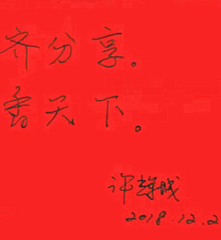 齐分享。
香天下。
许
2018.12.2